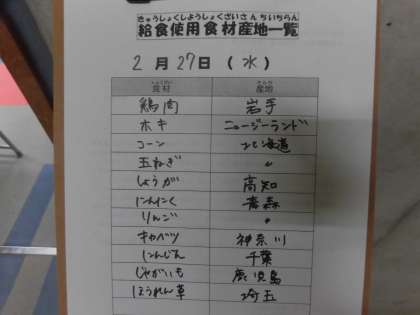 きゅうしょくしようしょくざいさんちいちらん
給食使用食材産地一覧
2月27日(水)
しょくざい さんち
食材 産地
鶏肉 岩手
ホキ ニュージーランド
コーン 北海道
玉ねぎ 〃
しょうが 高知
にんにく 青森
りんご 〃
キャベツ 神奈川
にんじん 千葉
じゃがいも 鹿児島
ほうれん草 埼玉